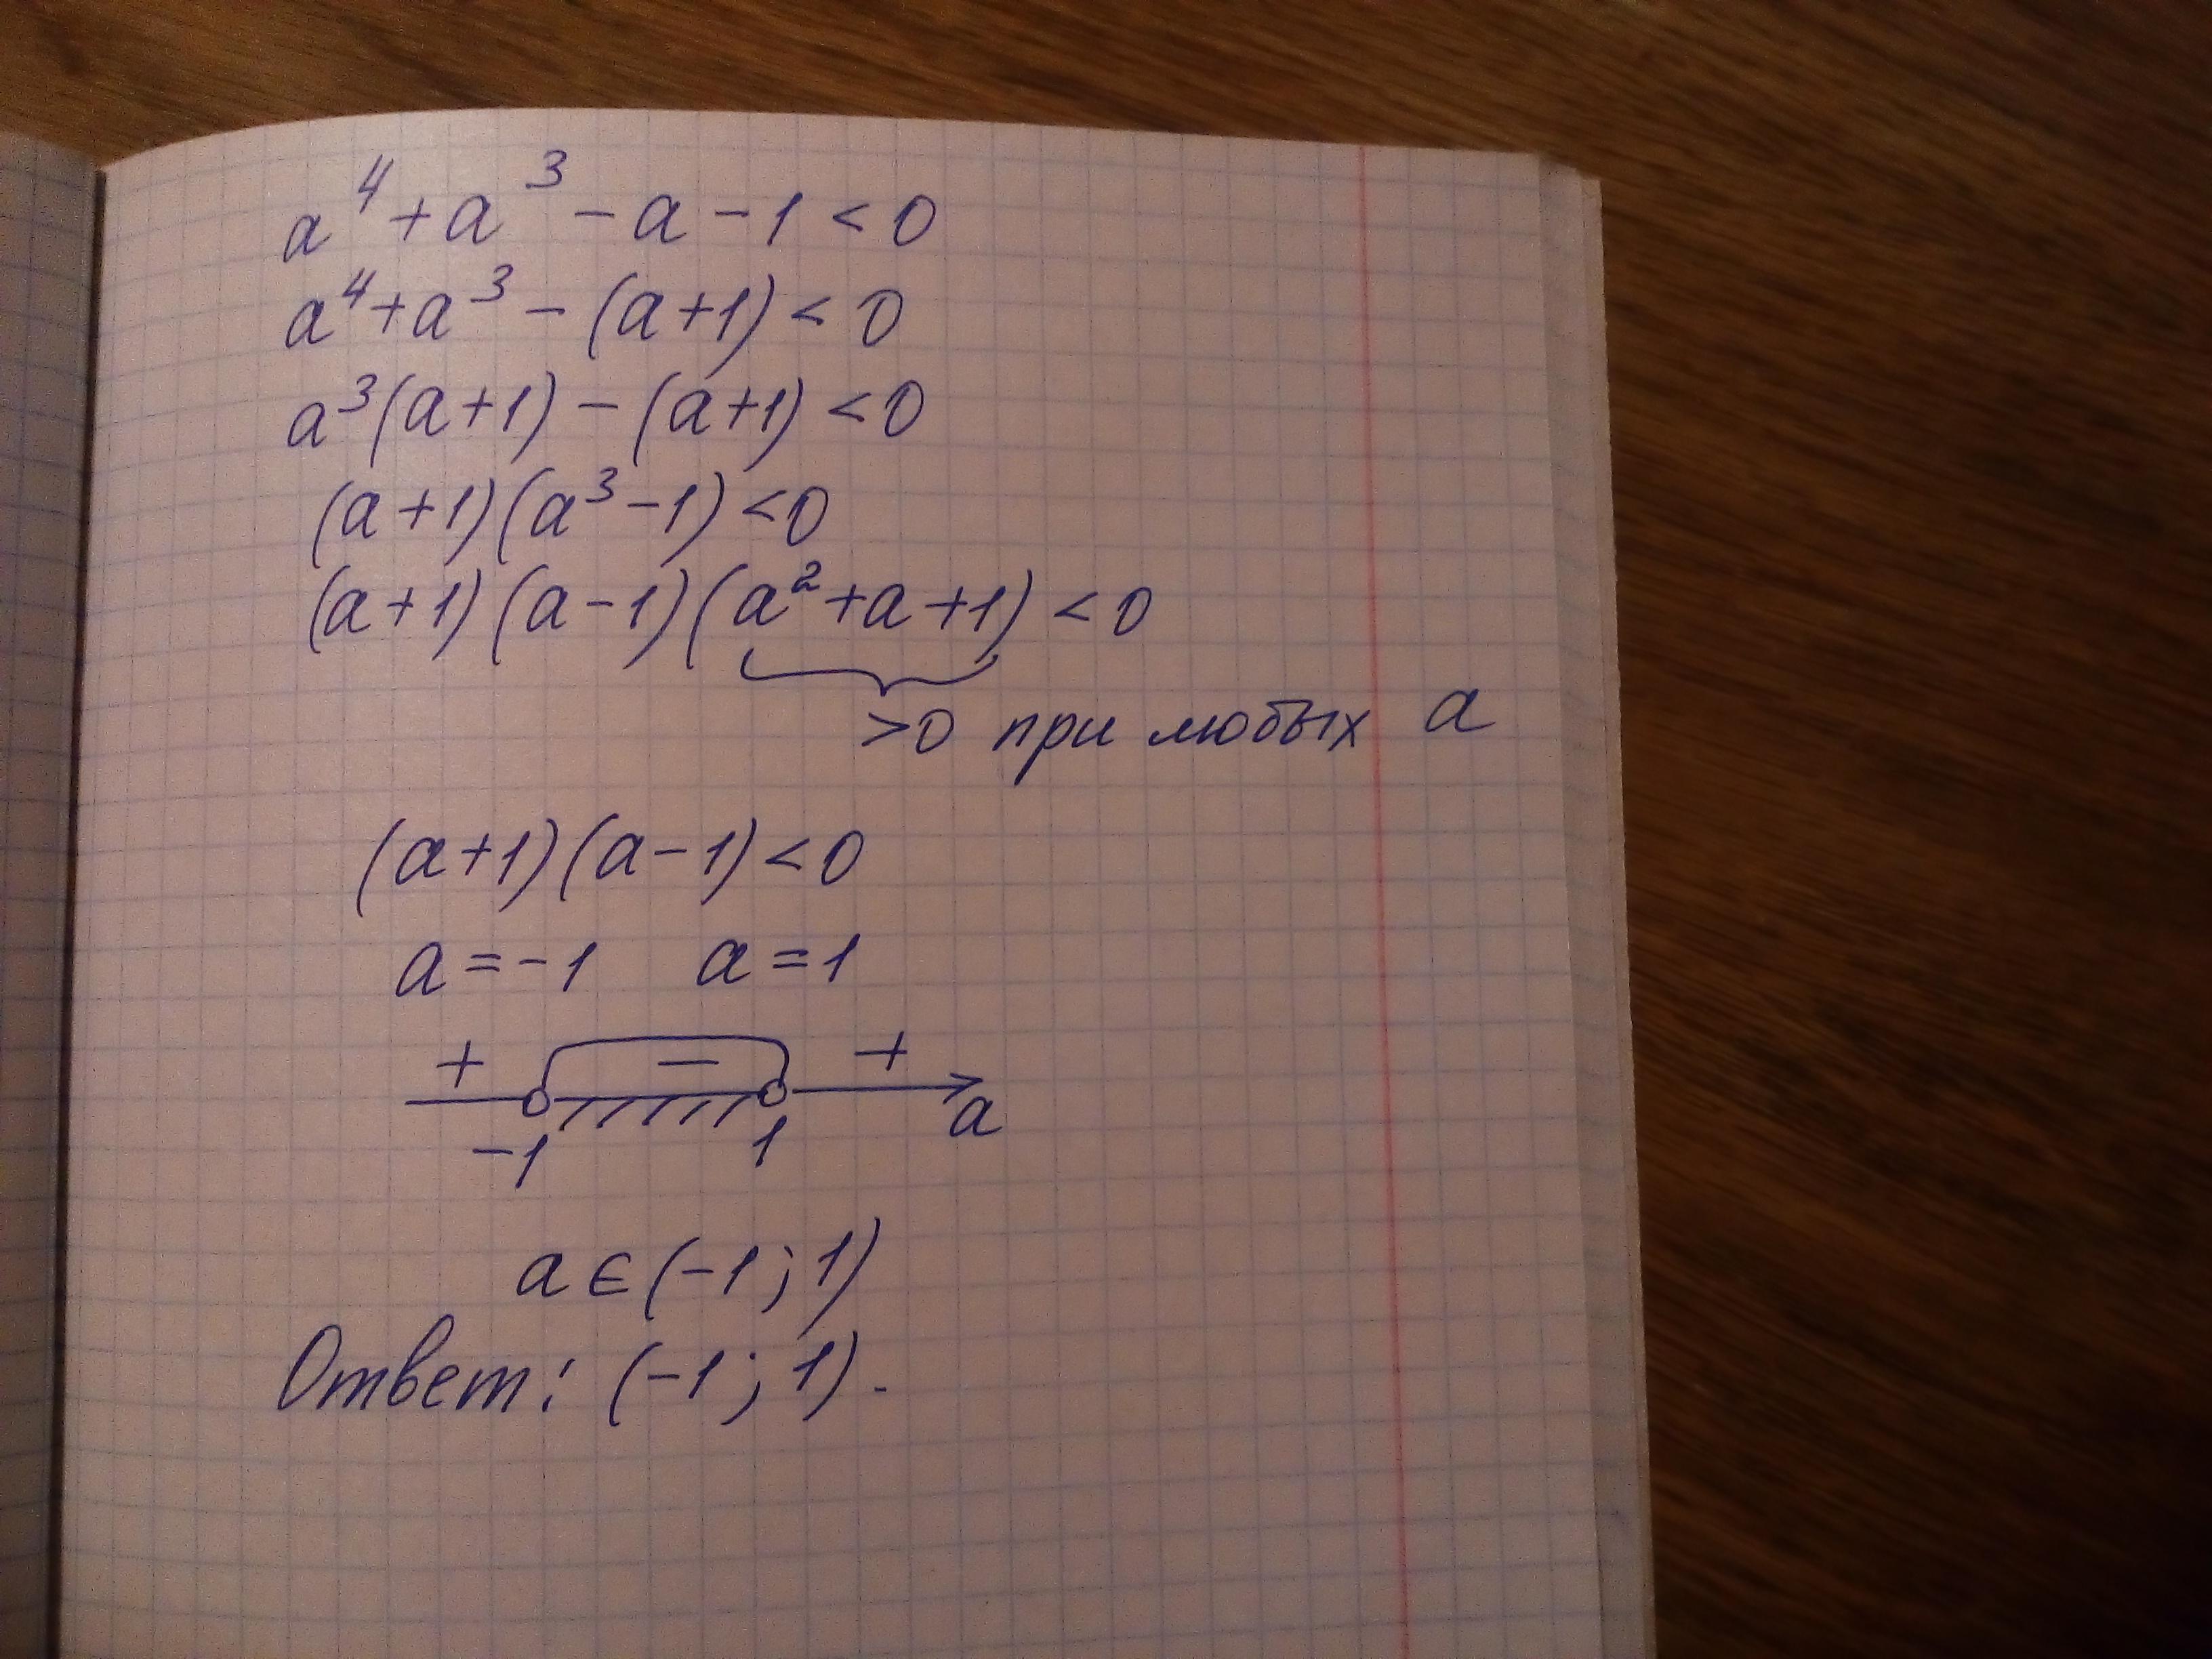 a⁴ + a³ − a − 1 < 0
a⁴ + a³ − (a + 1) < 0
a³(a + 1) − (a + 1) < 0
(a + 1)(a³ − 1) < 0
(a + 1)(a − 1)(a² + a + 1) < 0
> 0 при любых a
(a + 1)(a − 1) < 0
a = −1 a = 1
+ − +
−1 1 a
a ∈ (−1; 1)
Ответ: (−1; 1).